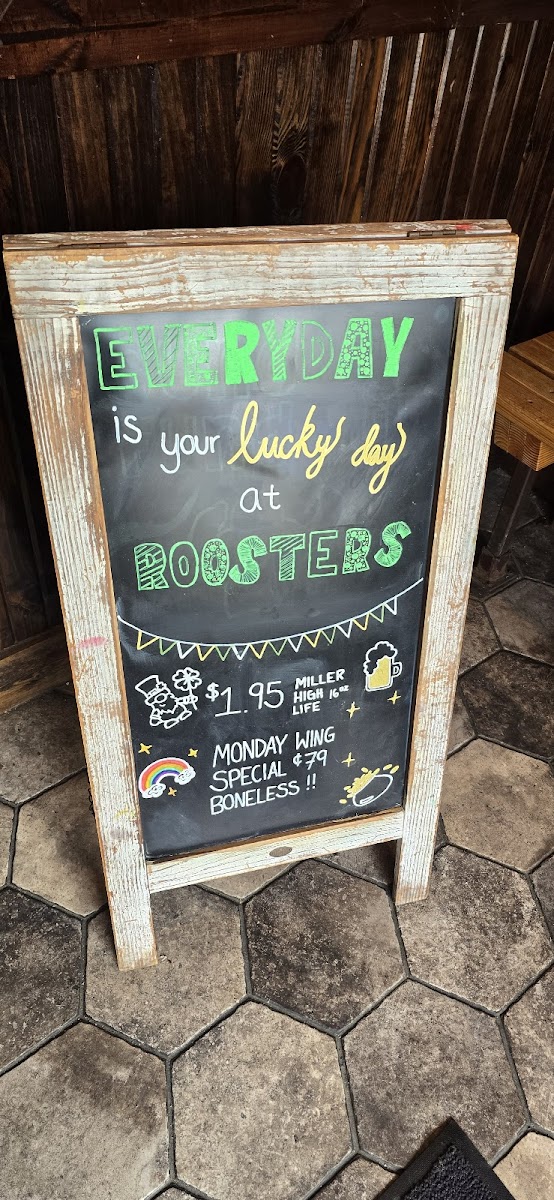 EVERYDAY
is your lucky day
at
ROOSTERS
$1.95 MILLER
HIGH 16oz
LIFE
MONDAY WING
SPECIAL ¢79
BONELESS !!